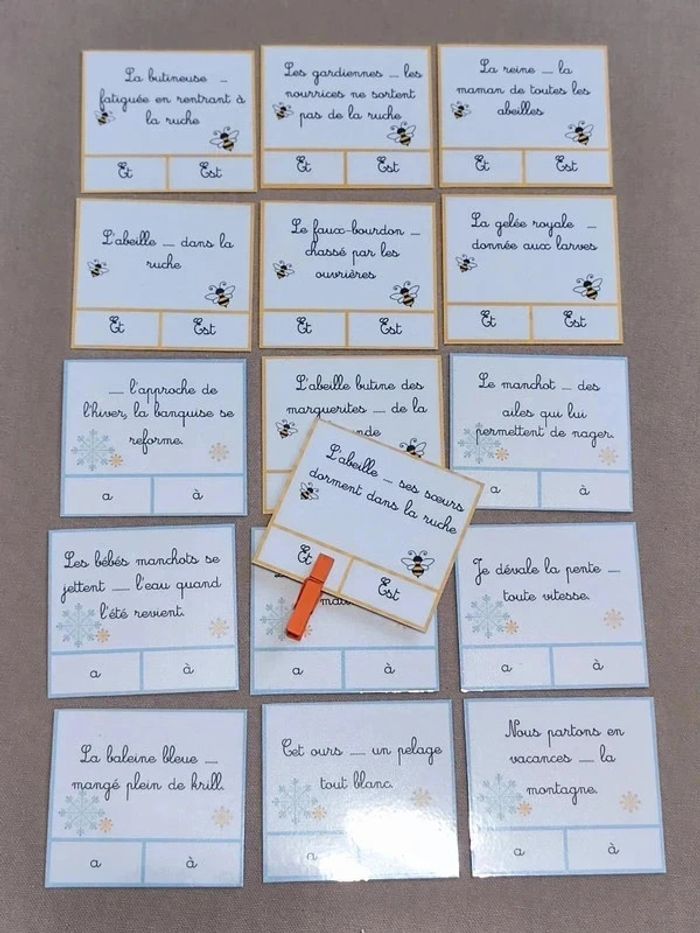 La butineuse _
fatiguée en rentrant à
la ruche
Et Est
Les gardiennes _ les
nourrices ne sortent
pas de la ruche
Et Est
La reine _ la
maman de toutes les
abeilles
Et Est
L'abeille _ dans la
ruche
Et Est
Le faux-bourdon _
chassé par les
ouvrières
Et Est
La gelée royale _
donnée aux larves
Et Est
__ l'approche de
l'hiver, la banquise se
reforme.
a à
L'abeille butine des
marguerites _ de la
Le manchot _ des
ailes qui lui
permettent de nager.
a à
L'abeille _ ses sœurs
dorment dans la ruche
Et Est
Les bébés manchots se
jettent __ l'eau quand
l'été revient.
a à
a à
Je dévale la pente _
toute vitesse.
a à
La baleine bleue _
mangé plein de krill.
a à
Cet ours _ un pelage
tout blanc.
a
Nous partons en
vacances _ la
montagne.
a à